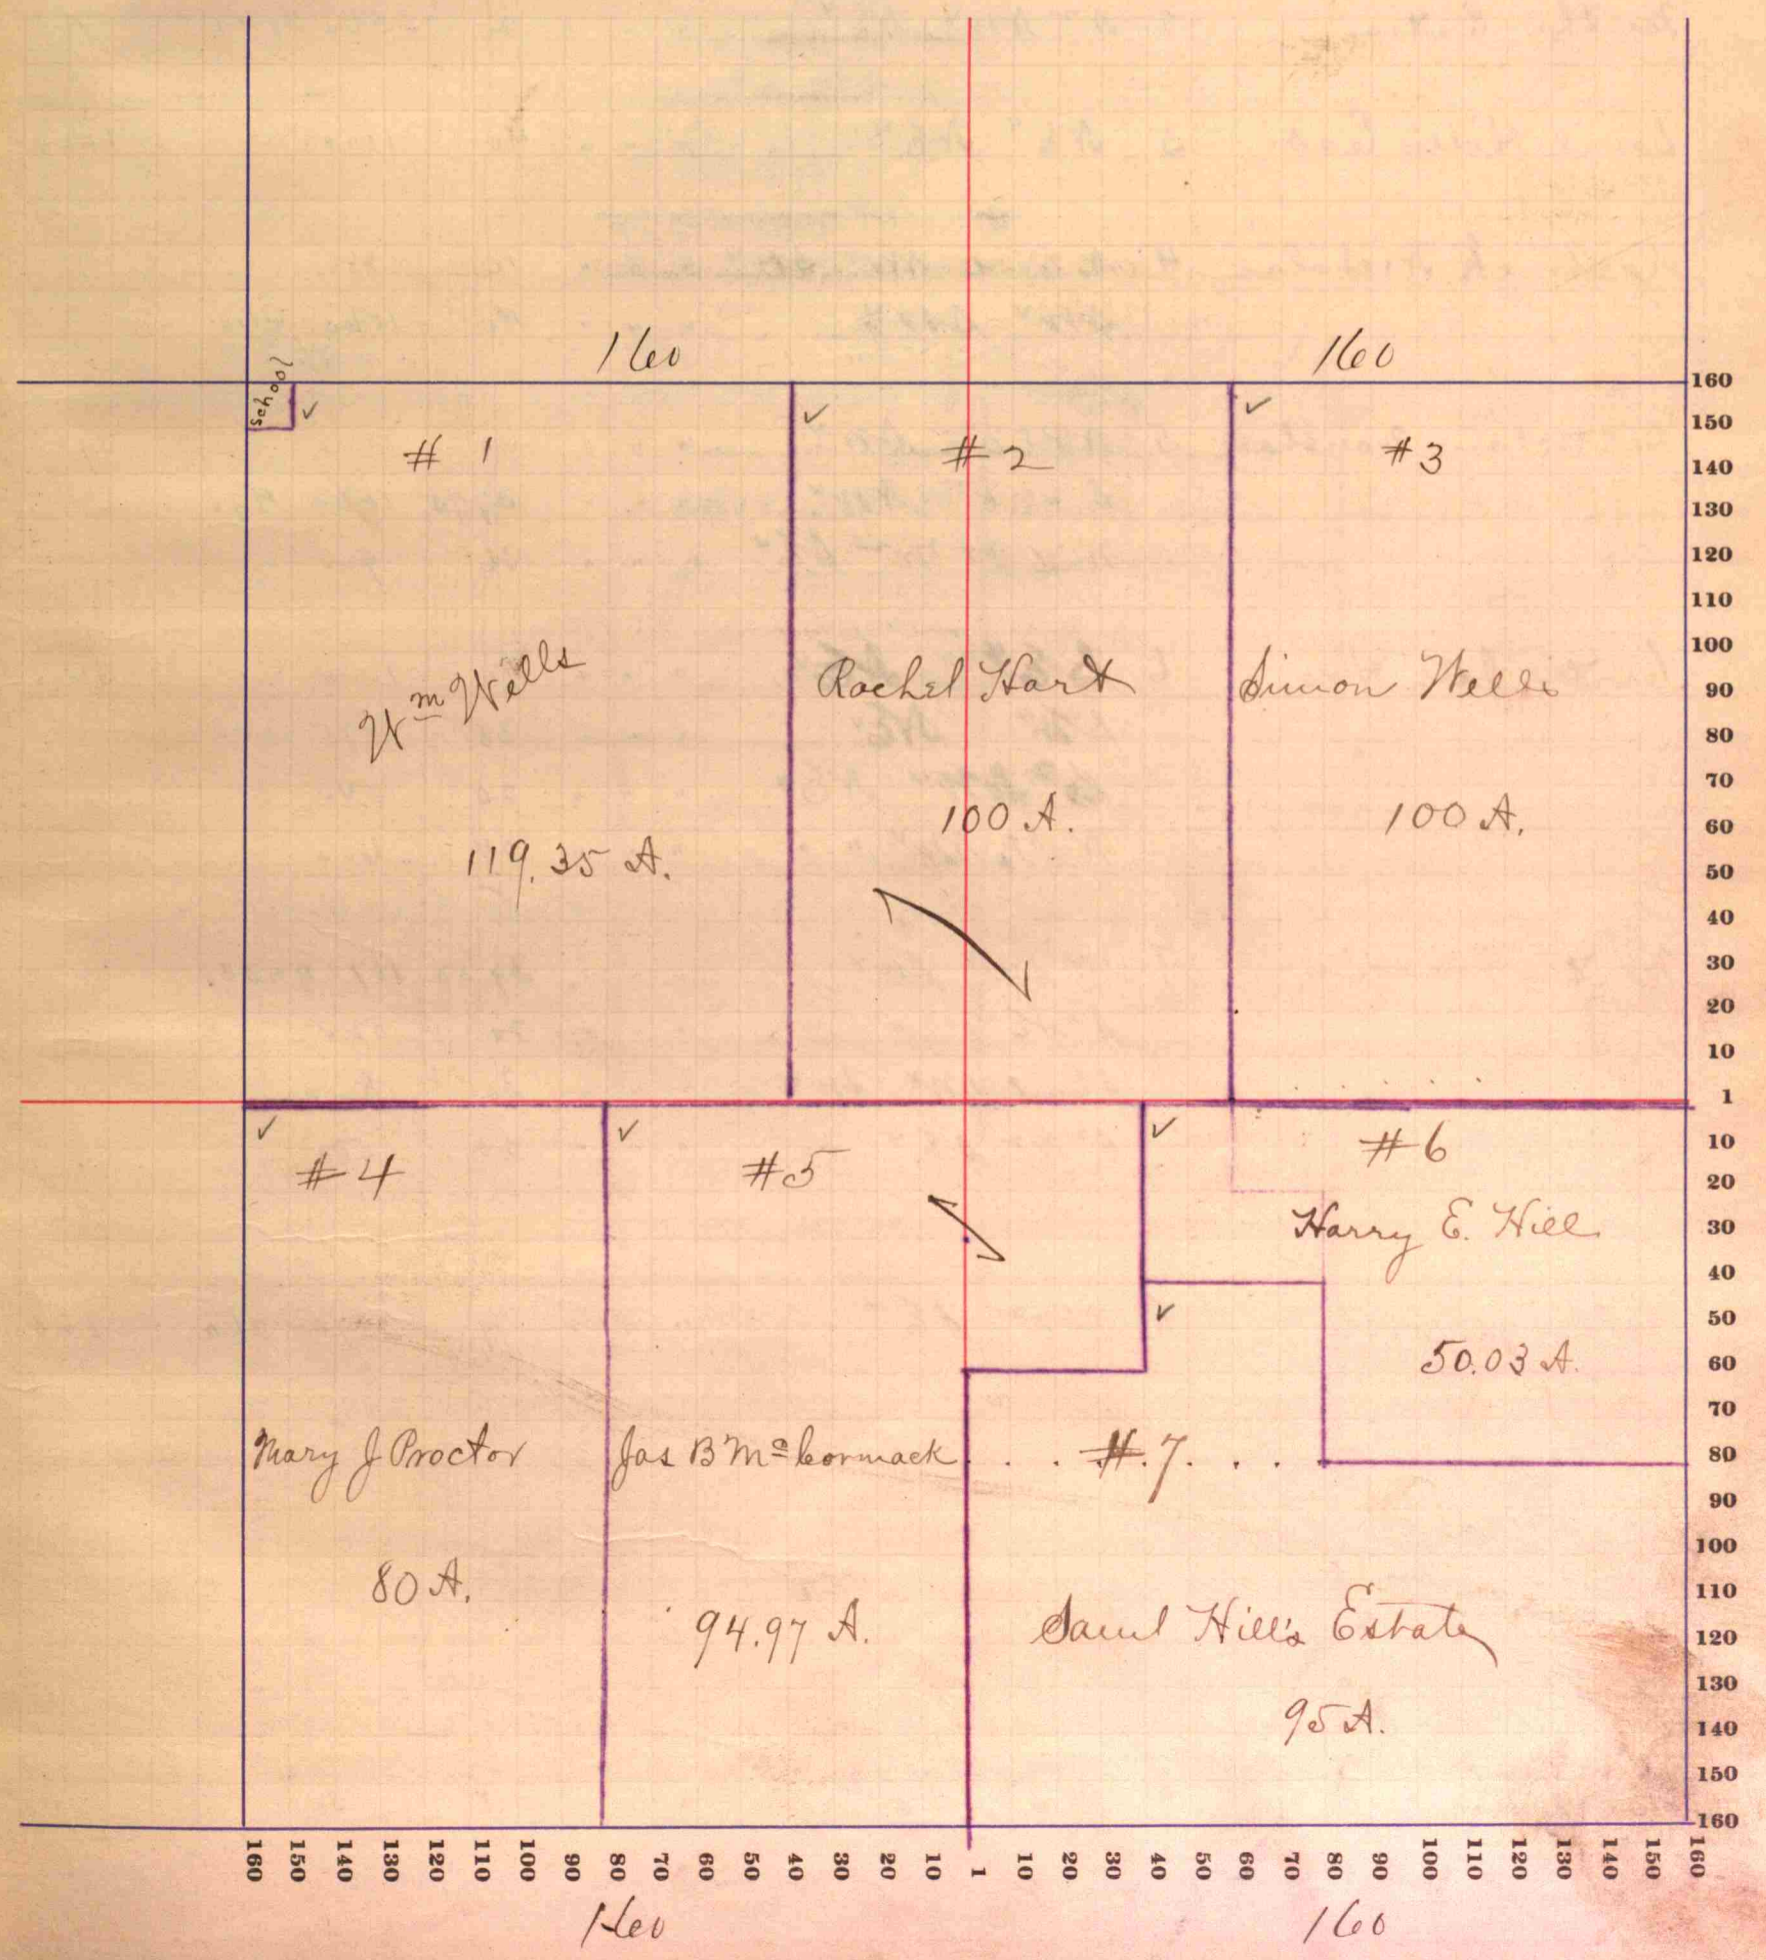 160 160
School
# 1
# 2
#3
Wm Wells
Rachel Hart
Simon Wells
119.35 A.
100 A.
100 A.
#4
#5
#6
Harry E. Hill
50.03 A.
Mary J Proctor
Jas B Mc Cormack
#7
80 A.
94.97 A.
Saml Hill's Estate
95 A.
160
150
140
130
120
110
100
90
80
70
60
50
40
30
20
10
1
10
20
30
40
50
60
70
80
90
100
110
120
130
140
150
160
160 150 140 130 120 110 100 90 80 70 60 50 40 30 20 10 1 10 20 30 40 50 60 70 80 90 100 110 120 130 140 150 160
160 160